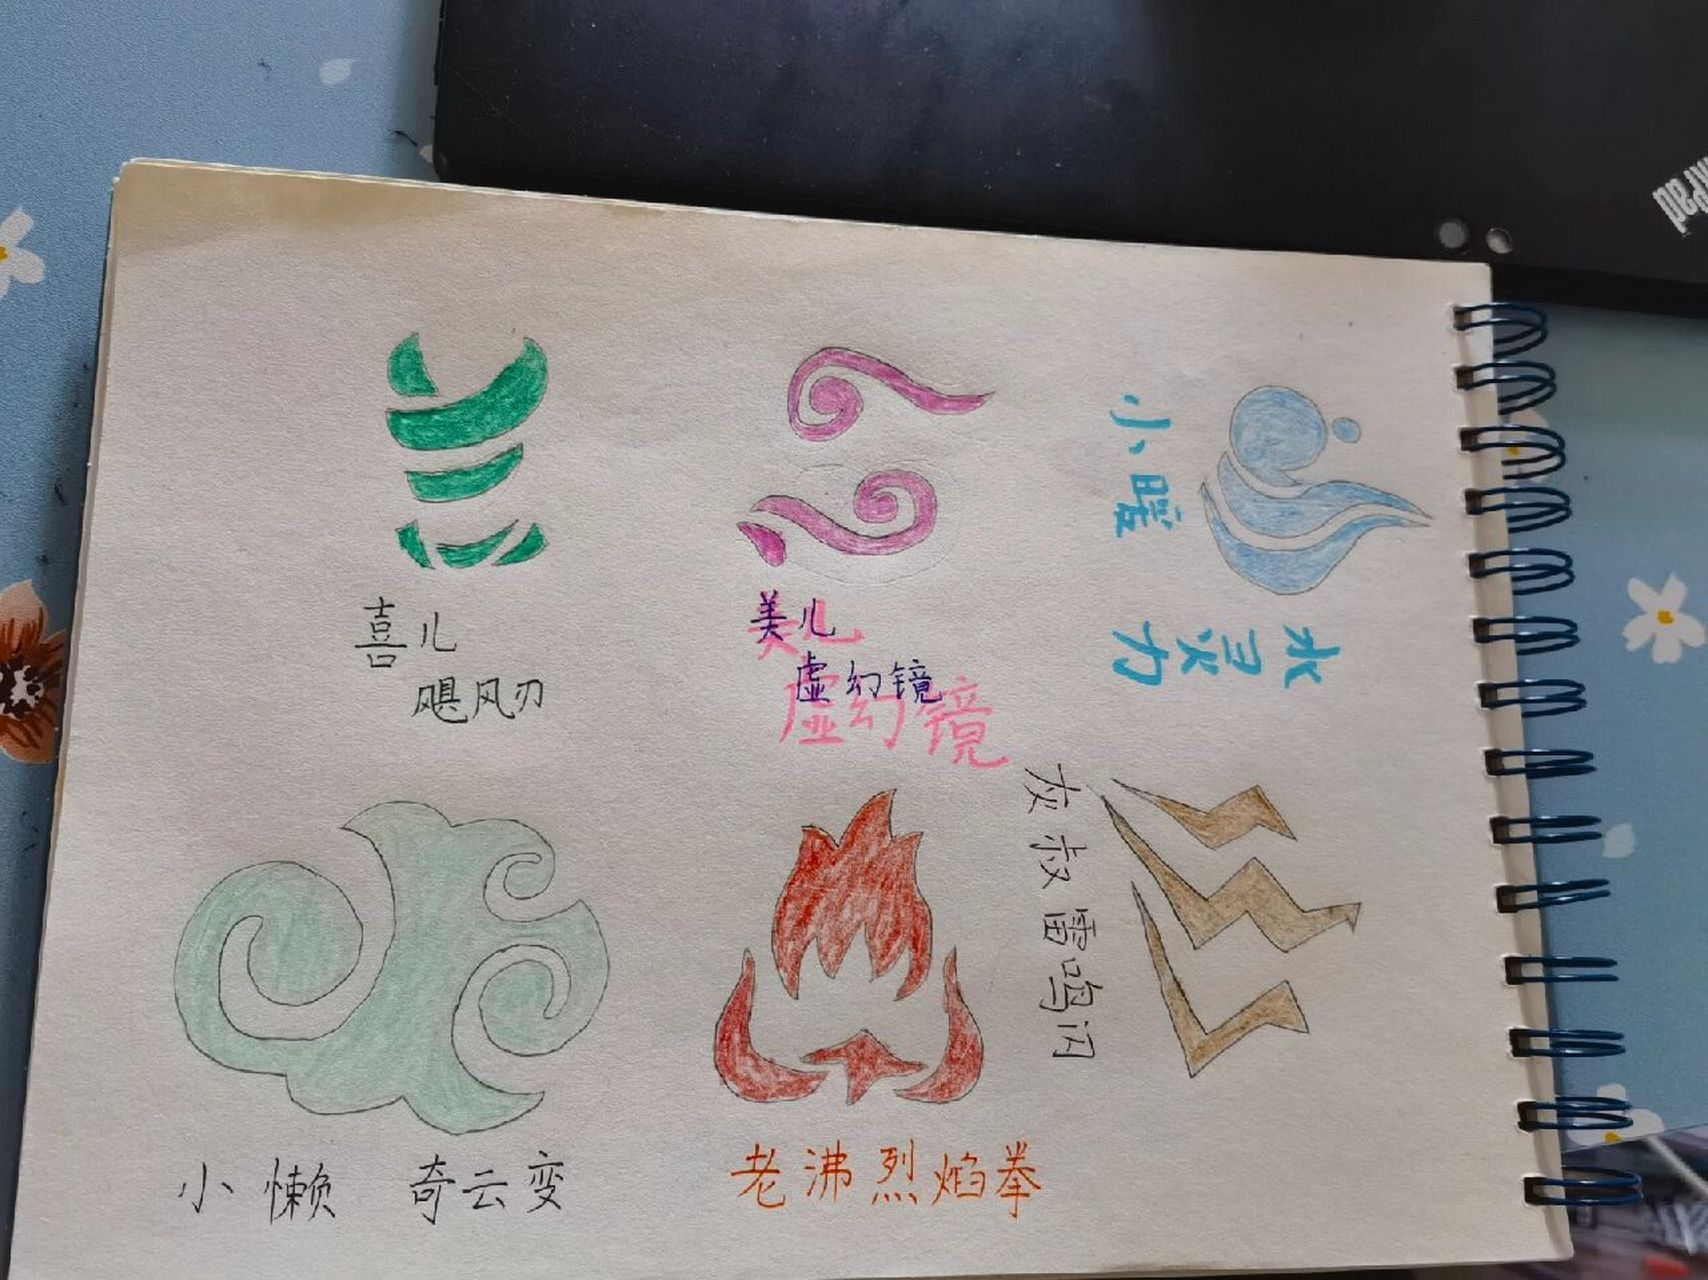 喜儿
飓风刃
美儿
虚幻镜
小暖
水灵力
灰叔 雷鸣闪
小懒 奇云变
老沸烈焰拳